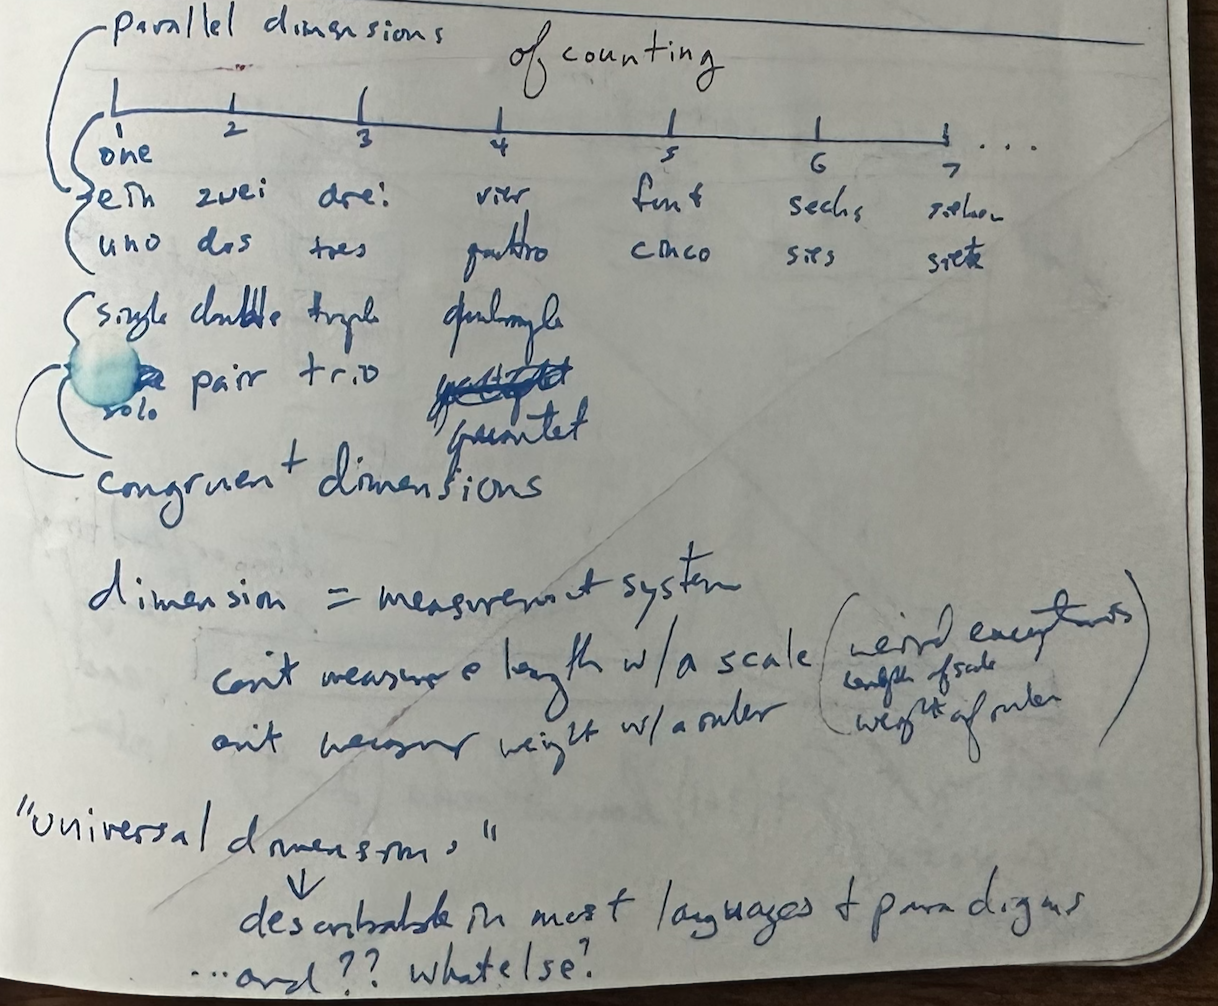 parallel dimensions
of counting
1 2 3 4 5 6 7 ...
one
ein zwei drei vier funf sechs sieben
uno dos tres quattro cinco sies siete
single double triple
pair trio
solo
congruent dimensions
dimension = measurement system
can't measure length w/a scale (weird exceptions
length of scale
can't measure weight w/a ruler weight of ruler)
"universal dimensions"
↓
describable in most languages + paradigms
...and ?? what else?